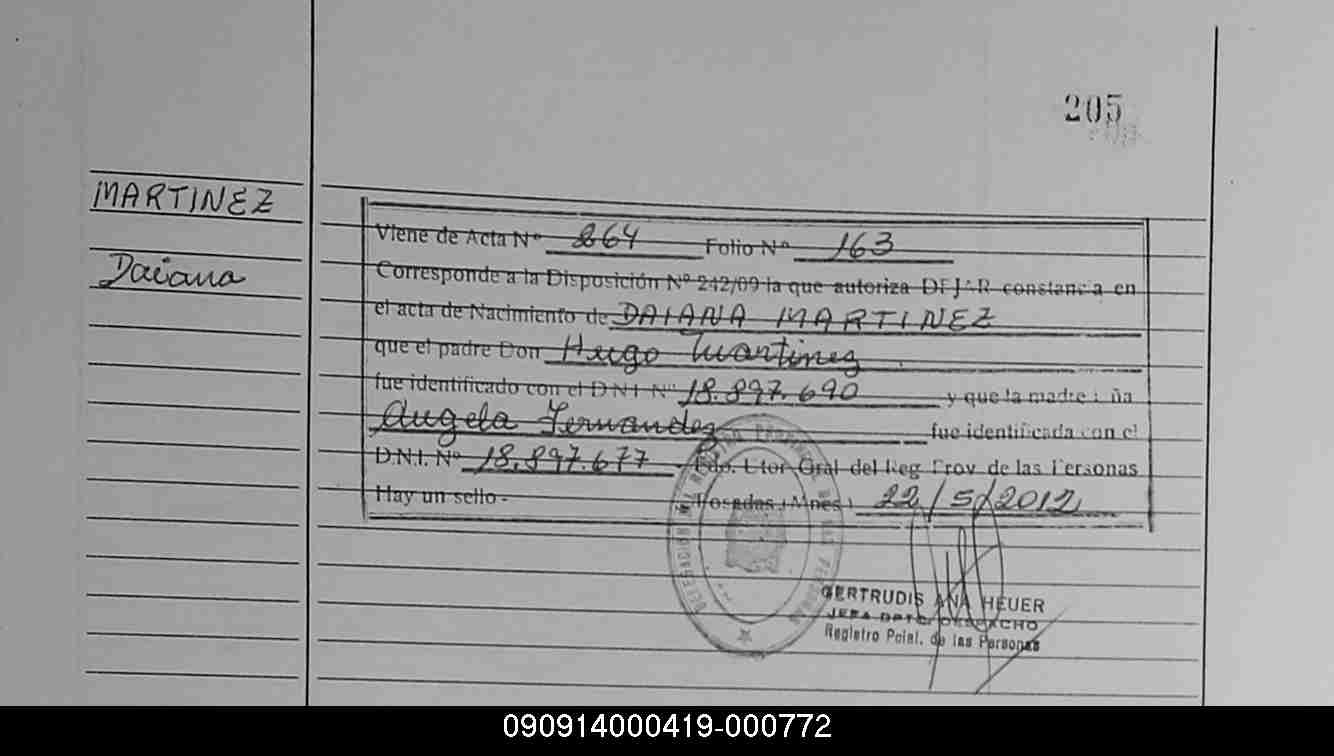 205
MARTINEZ
Daiana
Viene de Acta Nº 864 Folio Nº 163
Corresponde a la Disposición Nº 242/09 la que autoriza DEJAR constancia en
el acta de Nacimiento de DAIANA MARTINEZ
que el padre Don Hugo Martinez
fue identificado con el D.N.I. Nº 18.897.690 y que la madre
Angela Fernandez fue identificada con el
D.N.I. Nº 18.897.677 - Fdo. Dtor. Gral del Reg Prov de las Personas
Hay un sello - Posadas (Mnes) 22/5/2012
DELEGACION REGISTRO PROVINCIAL DE LAS PERSONAS
GERTRUDIS ANA HEUER
JEFA DPTO. DESPACHO
Registro Pcial. de las Personas
090914000419-000772